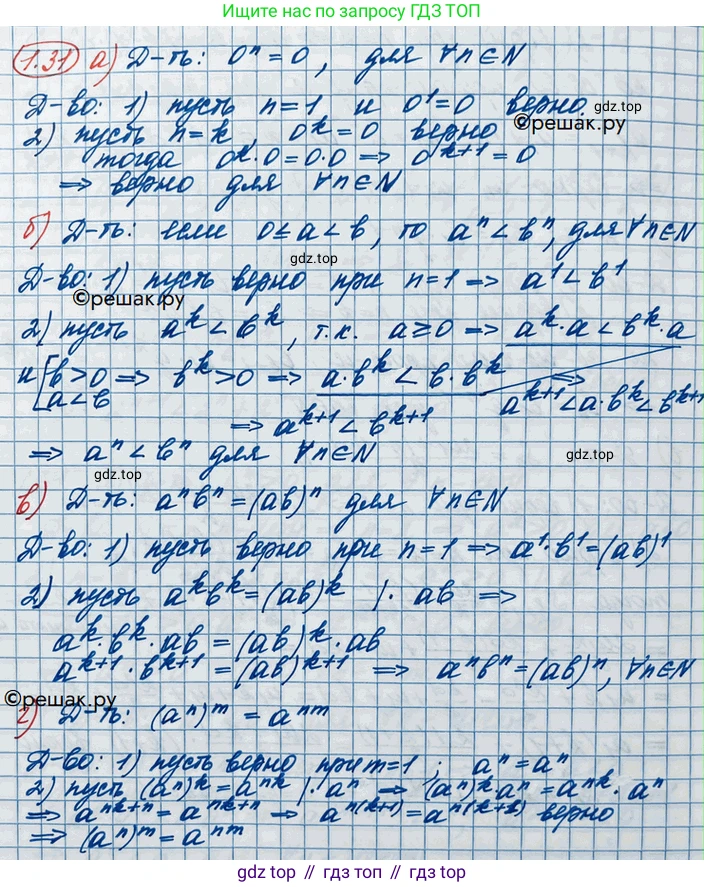 Ищите нас по запросу ГДЗ ТОП
1.31 а) Д-ть: 0ⁿ = 0, для ∀n∈N
Д-во: 1) пусть n=1 и 0¹=0 верно.
gdz.top
2) пусть n=k, 0ᵏ=0 верно
©решак.ру
тогда 0ᵏ·0=0·0 ⇒ 0ᵏ⁺¹=0
⇒ верно для ∀n∈N
б) Д-ть: если 0≤a<b, то aⁿ<bⁿ, для ∀n∈N
gdz.top
Д-во: 1) пусть верно при n=1 ⇒ a¹<b¹
©решак.ру
2) пусть aᵏ<bᵏ, т.к. a≥0 ⇒ aᵏ·a<bᵏ·a
и [b>0 ⇒ bᵏ>0 ⇒ a·bᵏ<b·bᵏ ⇒
a<b
aᵏ⁺¹<a·bᵏ<bᵏ⁺¹
⇒ aᵏ⁺¹<bᵏ⁺¹
⇒ aⁿ<bⁿ для ∀n∈N
gdz.top
gdz.top
в) Д-ть: aⁿbⁿ=(ab)ⁿ для ∀n∈N
Д-во: 1) пусть верно при n=1 ⇒ a¹·b¹=(ab)¹
2) пусть aᵏbᵏ=(ab)ᵏ |·ab ⇒
aᵏ·bᵏ·ab=(ab)ᵏ·ab
aᵏ⁺¹·bᵏ⁺¹=(ab)ᵏ⁺¹ ⇒ aⁿbⁿ=(ab)ⁿ, ∀n∈N
©решак.ру
г) Д-ть: (aⁿ)ᵐ=aⁿᵐ
Д-во: 1) пусть верно при m=1; aⁿ=aⁿ
2) пусть (aⁿ)ᵏ=aⁿᵏ |·aⁿ → (aⁿ)ᵏaⁿ=aⁿᵏ·aⁿ
gdz.top
⇒ aⁿᵏ⁺ⁿ=aⁿᵏ⁺ⁿ → aⁿ⁽ᵏ⁺¹⁾=aⁿ⁽ᵏ⁺¹⁾ верно
⇒ (aⁿ)ᵐ=aⁿᵐ
gdz.top // гдз.топ // gdz top